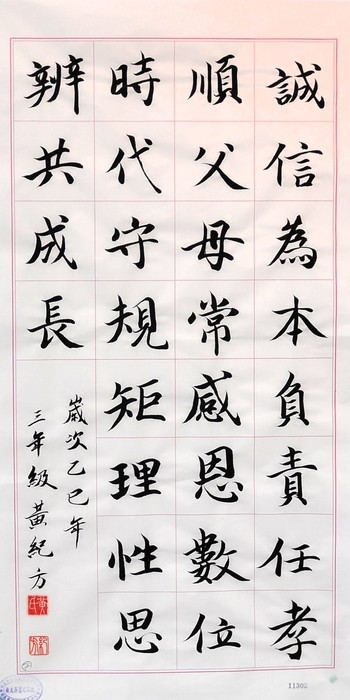 誠信為本負責任孝
順父母常感恩數位
時代守規矩理性思
辨共成長
歲次乙巳年
三年級黃紀方
11302